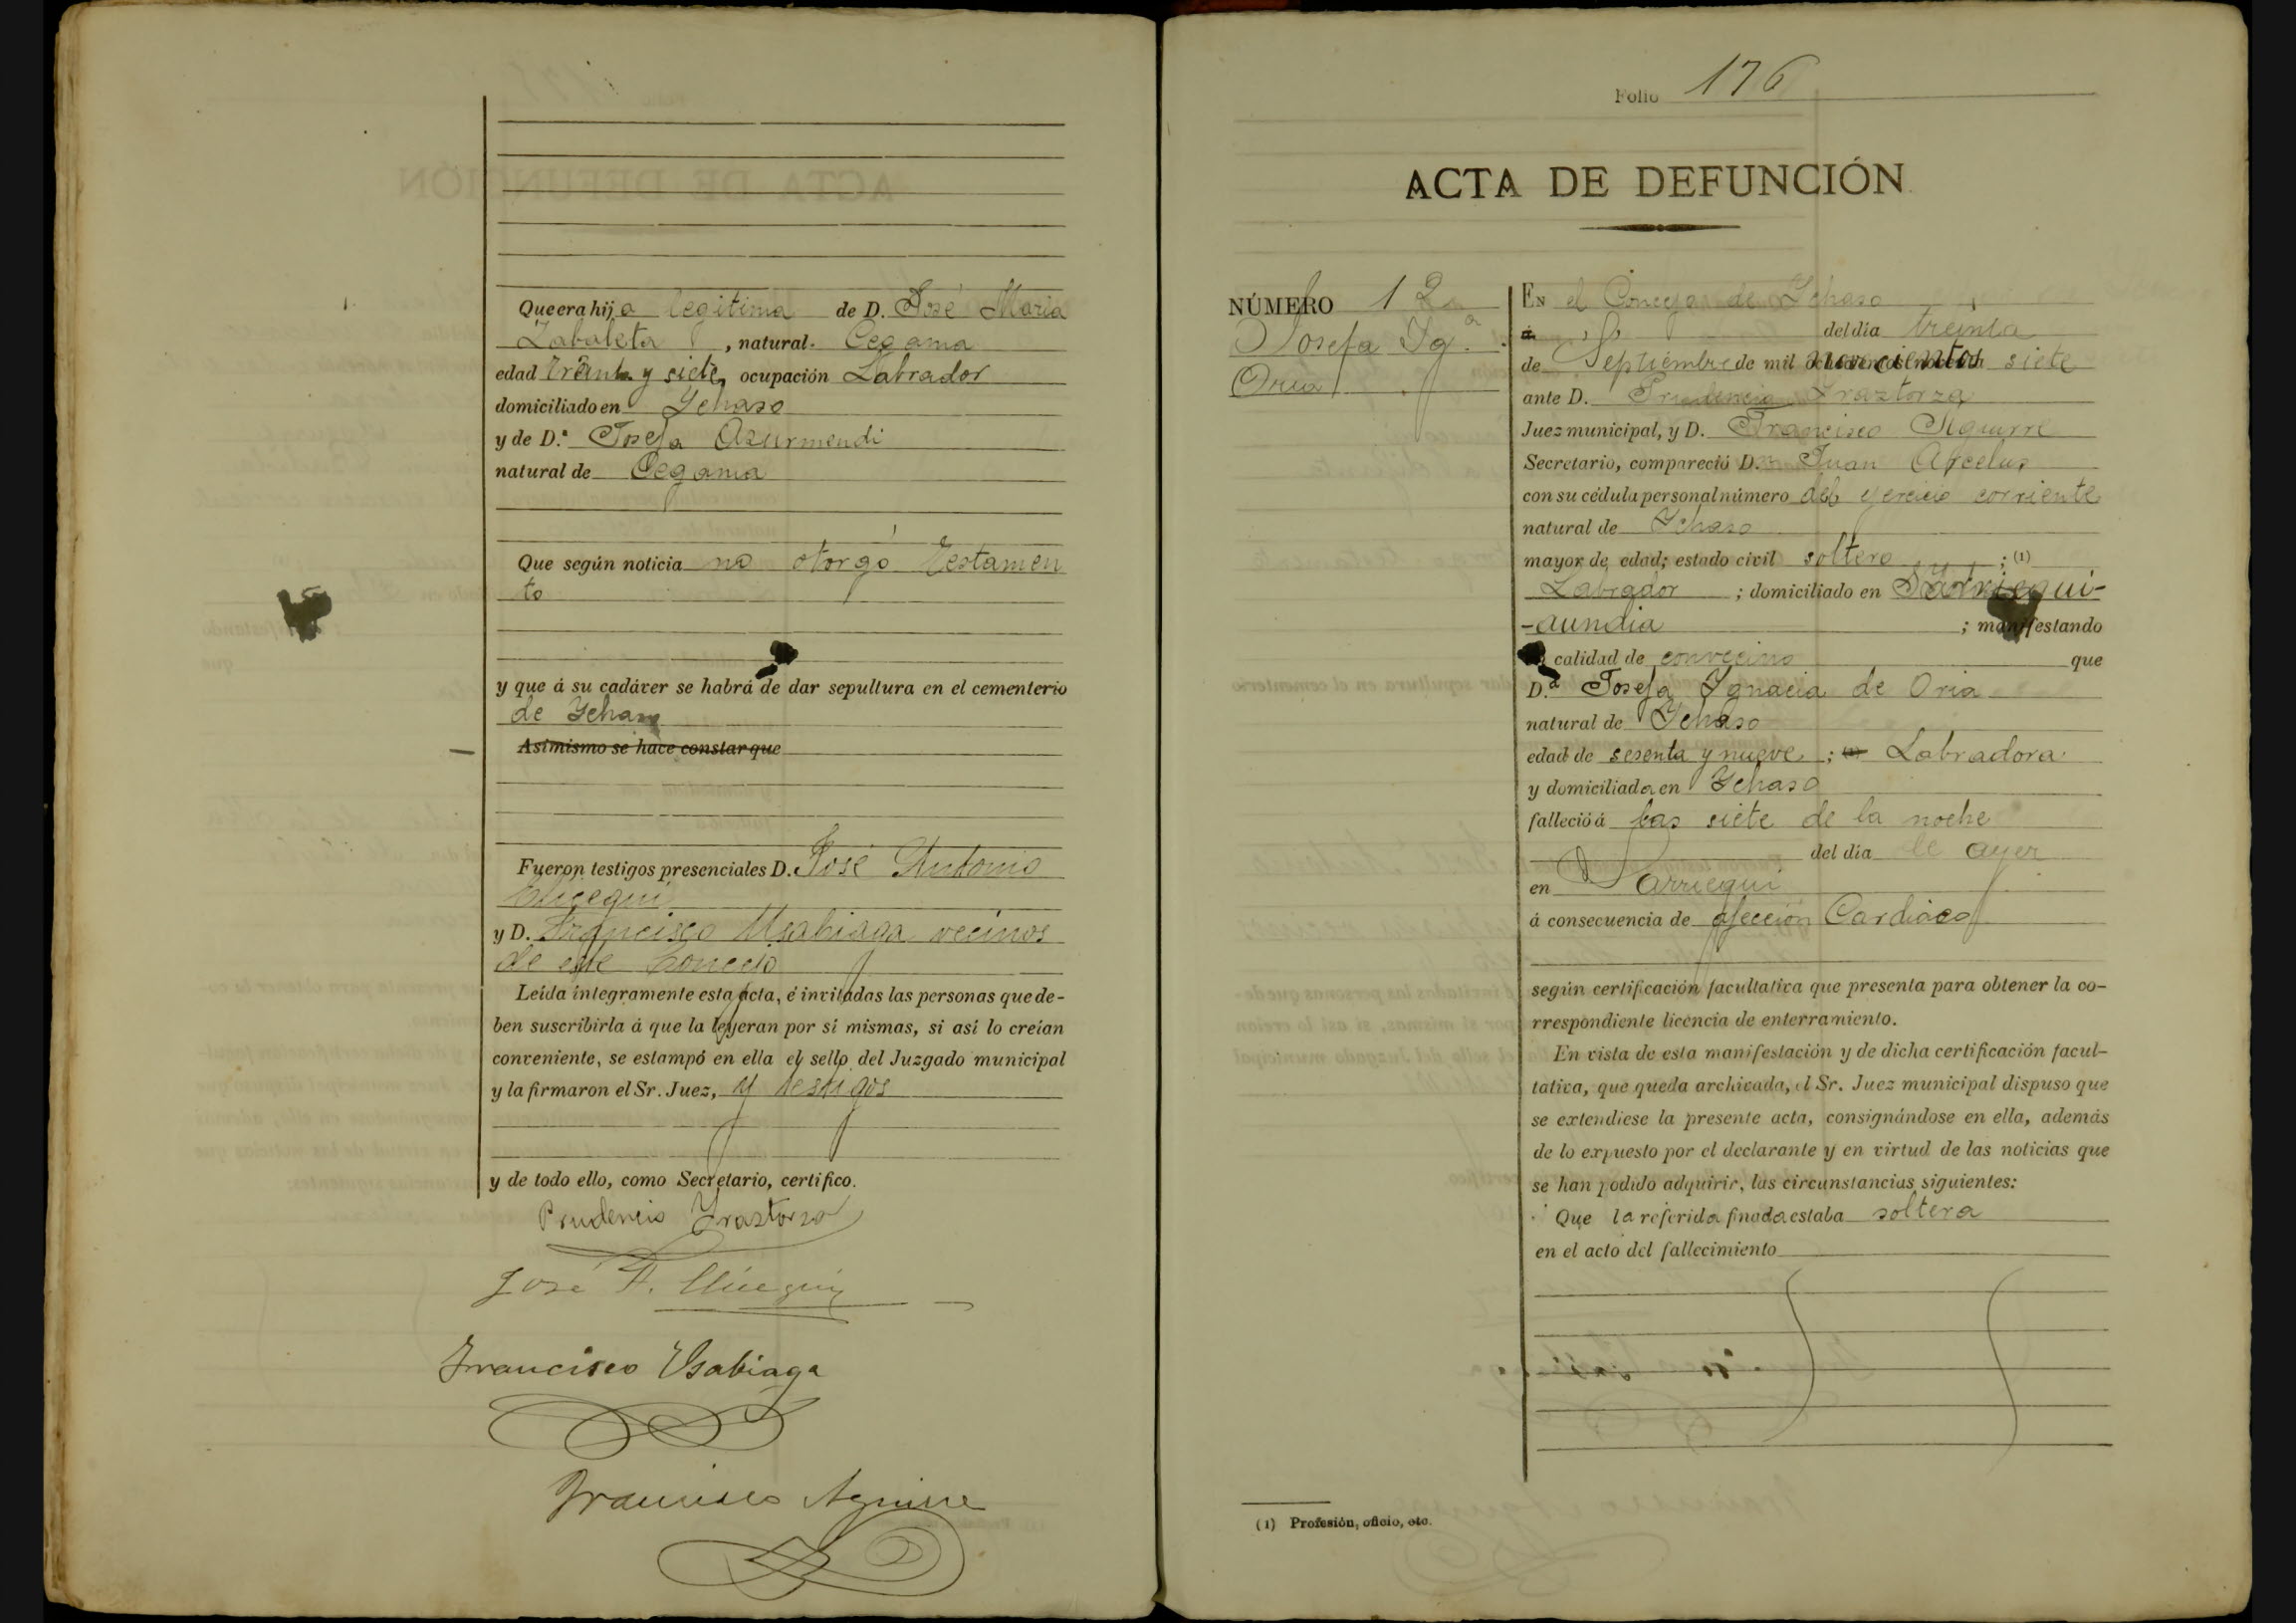 Que era hija legitima de D. José Maria
Zabaleta, natural. Cegama
edad treinta y siete, ocupación Labrador
domiciliado en Ychaso
y de D.ª Josefa Azurmendi
natural de Cegama
Que según noticia no otorgó testamen
to
y que á su cadáver se habrá de dar sepultura en el cementerio
de Ychaso
Asimismo se hace constar que
Fueron testigos presenciales D. José Antonio
y D. Francisco Usabiaga vecinos
de este Concejo
Leída íntegramente esta acta, é invitadas las personas que de-
ben suscribirla á que la leyeran por sí mismas, si así lo creían
conveniente, se estampó en ella el sello del Juzgado municipal
y la firmaron el Sr. Juez, y testigos
y de todo ello, como Secretario, certifico.
Prudencio Yraztorza
José A.
Francisco Usabiaga
Francisco Aguirre
Folio 176
ACTA DE DEFUNCIÓN
NÚMERO 12
Josefa Ig.ª
Oria
EN el Concejo de Ychaso
á del dia treinta
de Septiembre de mil novecientos siete
ante D. Prudencio Yraztorza
Juez municipal, y D. Francisco Aguirre
Secretario, compareció D. Juan Arcelus
con su cédula personal número del ejercicio corriente
natural de Ychaso
mayor de edad; estado civil soltero ; (1)
Labrador ; domiciliado en Sarriegui-
-aundia ; manifestando
calidad de convecino que
D.ª Josefa Ygnacia de Oria
natural de Ychaso
edad de sesenta y nueve ; Labradora
y domiciliada en Ychaso
falleció á las siete de la noche
del dia de ayer
en Sarriegui
á consecuencia de afección Cardiaca
según certificación facultativa que presenta para obtener la co-
rrespondiente licencia de enterramiento.
En vista de esta manifestación y de dicha certificación facul-
tativa, que queda archivada, el Sr. Juez municipal dispuso que
se extendiese la presente acta, consignándose en ella, además
de lo expuesto por el declarante y en virtud de las noticias que
se han podido adquirir, las circunstancias siguientes:
Que la referida finada estaba soltera
en el acto del fallecimiento
(1) Profesión, oficio, etc.